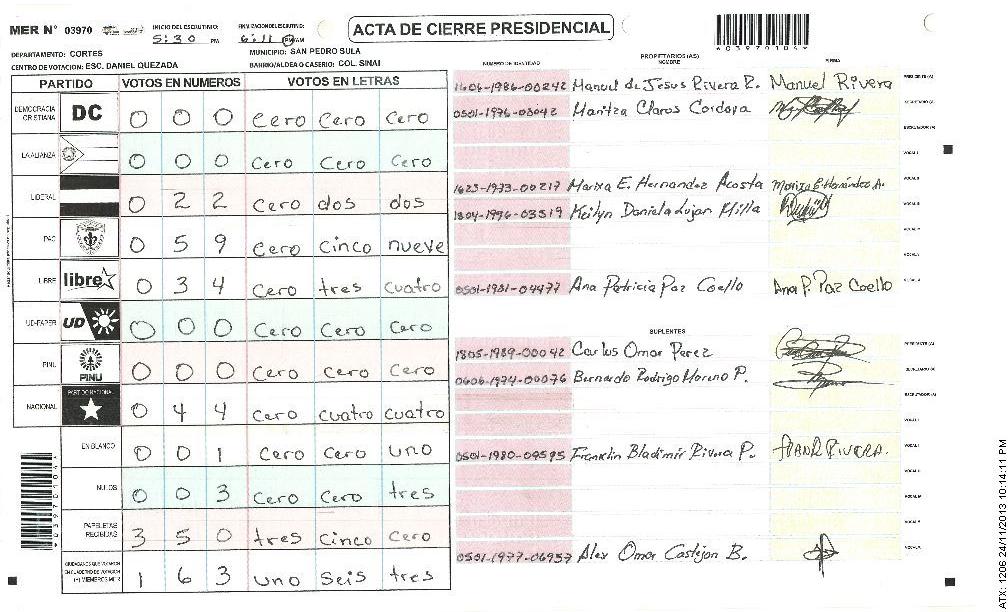 MER N° 03970
INICIO DEL ESCRUTINIO: 5:30 PM
FINALIZACION DEL ESCRUTINIO: 6:11 PM/AM
ACTA DE CIERRE PRESIDENCIAL
*03970104*
DEPARTAMENTO: CORTES
MUNICIPIO: SAN PEDRO SULA
CENTRO DE VOTACION: ESC. DANIEL QUEZADA
BARRIO/ALDEA O CASERIO: COL. SINAI
PARTIDO VOTOS EN NUMEROS VOTOS EN LETRAS
DEMOCRACIA CRISTIANA DC 0 0 0 Cero Cero Cero
LA ALIANZA 0 0 0 Cero Cero Cero
LIBERAL 0 2 2 Cero dos dos
PAC 0 5 9 Cero Cinco nueve
LIBRE libre 0 3 4 Cero tres cuatro
UD-FAPER UD 0 0 0 Cero Cero Cero
PINU PINU 0 0 0 Cero Cero Cero
NACIONAL PARTIDO NACIONAL 0 4 4 Cero cuatro cuatro
EN BLANCO 0 0 1 Cero Cero uno
NULOS 0 0 3 Cero Cero tres
PAPELETAS RECIBIDAS 3 5 0 tres Cinco Cero
CIUDADANOS QUE VOTARON EN CUADERNO DE VOTACION (+) MIEMBROS MER 1 6 3 uno Seis tres
NUMERO DE IDENTIDAD
PROPIETARIOS (AS)
NOMBRE
FIRMA
1606-1986-00242 Manuel de Jesus Rivera R. Manuel Rivera PRESIDENTE (A)
0501-1976-03042 Maritza Claros Cordova SECRETARIO (A)
ESCRUTADOR (A)
VOCAL I
1623-1973-00217 Marixa E. Hernandez Acosta Marixa E. Hernández A. VOCAL II
1804-1996-03519 Keilyn Daniela Lujan Milla
0501-1981-04477 Ana Patricia Paz Coello Ana P. Paz Coello
SUPLENTES
1805-1989-00042 Carlos Omar Perez PRESIDENTE (A)
0606-1974-00076 Bernardo Rodrigo Moreno P. SECRETARIO (A)
ESCRUTADOR (A)
VOCAL I
0501-1980-09595 Franklin Bladimir Rivera P. FRANK RIVERA.
0501-1977-06957 Alex Omar Castejon B.
*03970104*
ATX: 1206 24/11/2013 10:14:11 PM